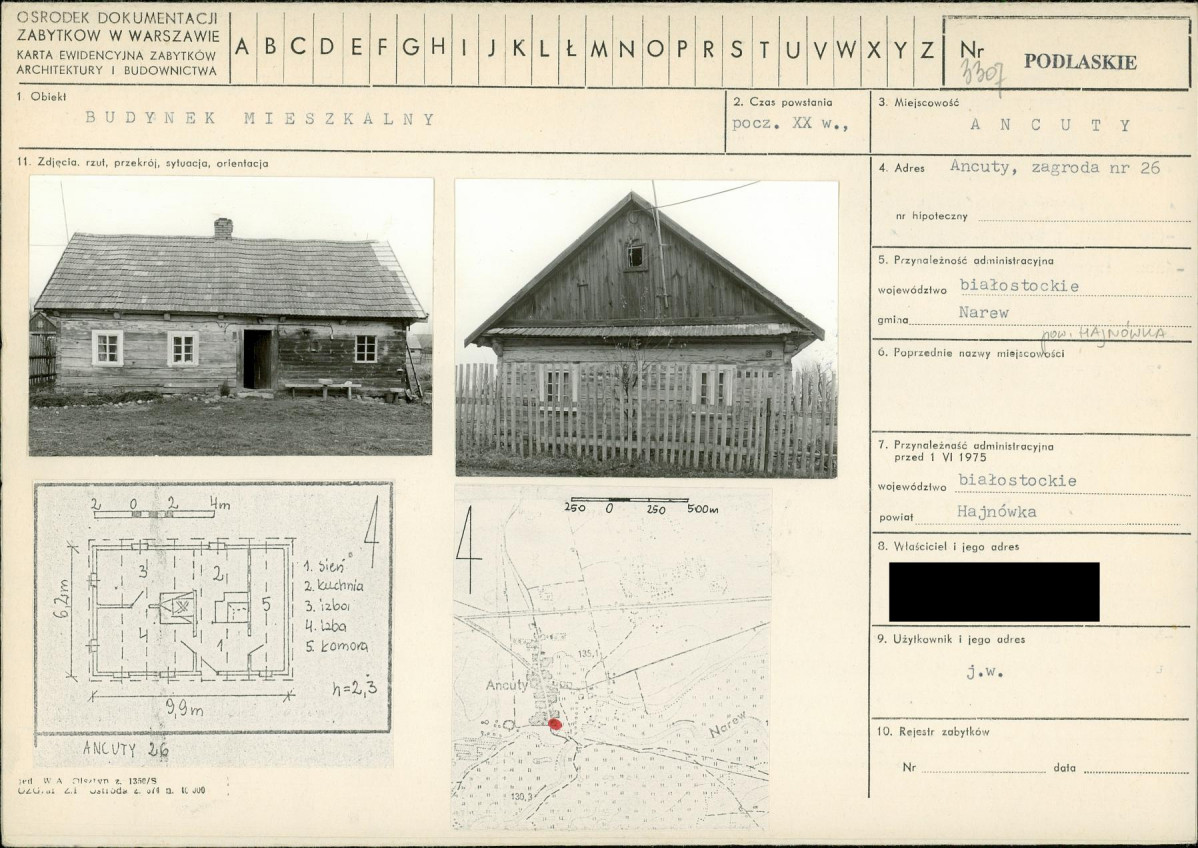 OSRODEK DOKUMENTACJI
ZABYTKOW W WARSZAWIE
KARTA EWIDENCYJNA ZABYTKÓW
ARCHITEKTURY I BUDOWNICTWA
A B C D E F G H I J K L Ł M N O P R S T U V W X Y Z
Nr
3307
PODLASKIE
1. Obiekt
BUDYNEK MIESZKALNY
2. Czas powstania
pocz. XX w.,
3. Miejscowość
ANCUTY
11. Zdjęcia, rzut, przekrój, sytuacja, orientacja
4. Adres Ancuty, zagroda nr 26
nr hipoteczny
5. Przynależność administracyjna
województwo białostockie
gmina Narew
pow. HAJNÓWKA
6. Poprzednie nazwy miejscowości
7. Przynależność administracyjna
przed 1 VI 1975
województwo białostockie
powiat Hajnówka
8. Właściciel i jego adres
9. Użytkownik i jego adres
j.w.
10. Rejestr zabytków
Nr data
2 0 2 4m
6,2m
3 2 5
4 1
9,9m
1. Sień
2. kuchnia
3. izba
4. izba
5. komora
h=2,3
ANCUTY 26
250 0 250 500m
135,1
Ancuty
Narew
139,3
W.A. Olsztyn z. 1350/S